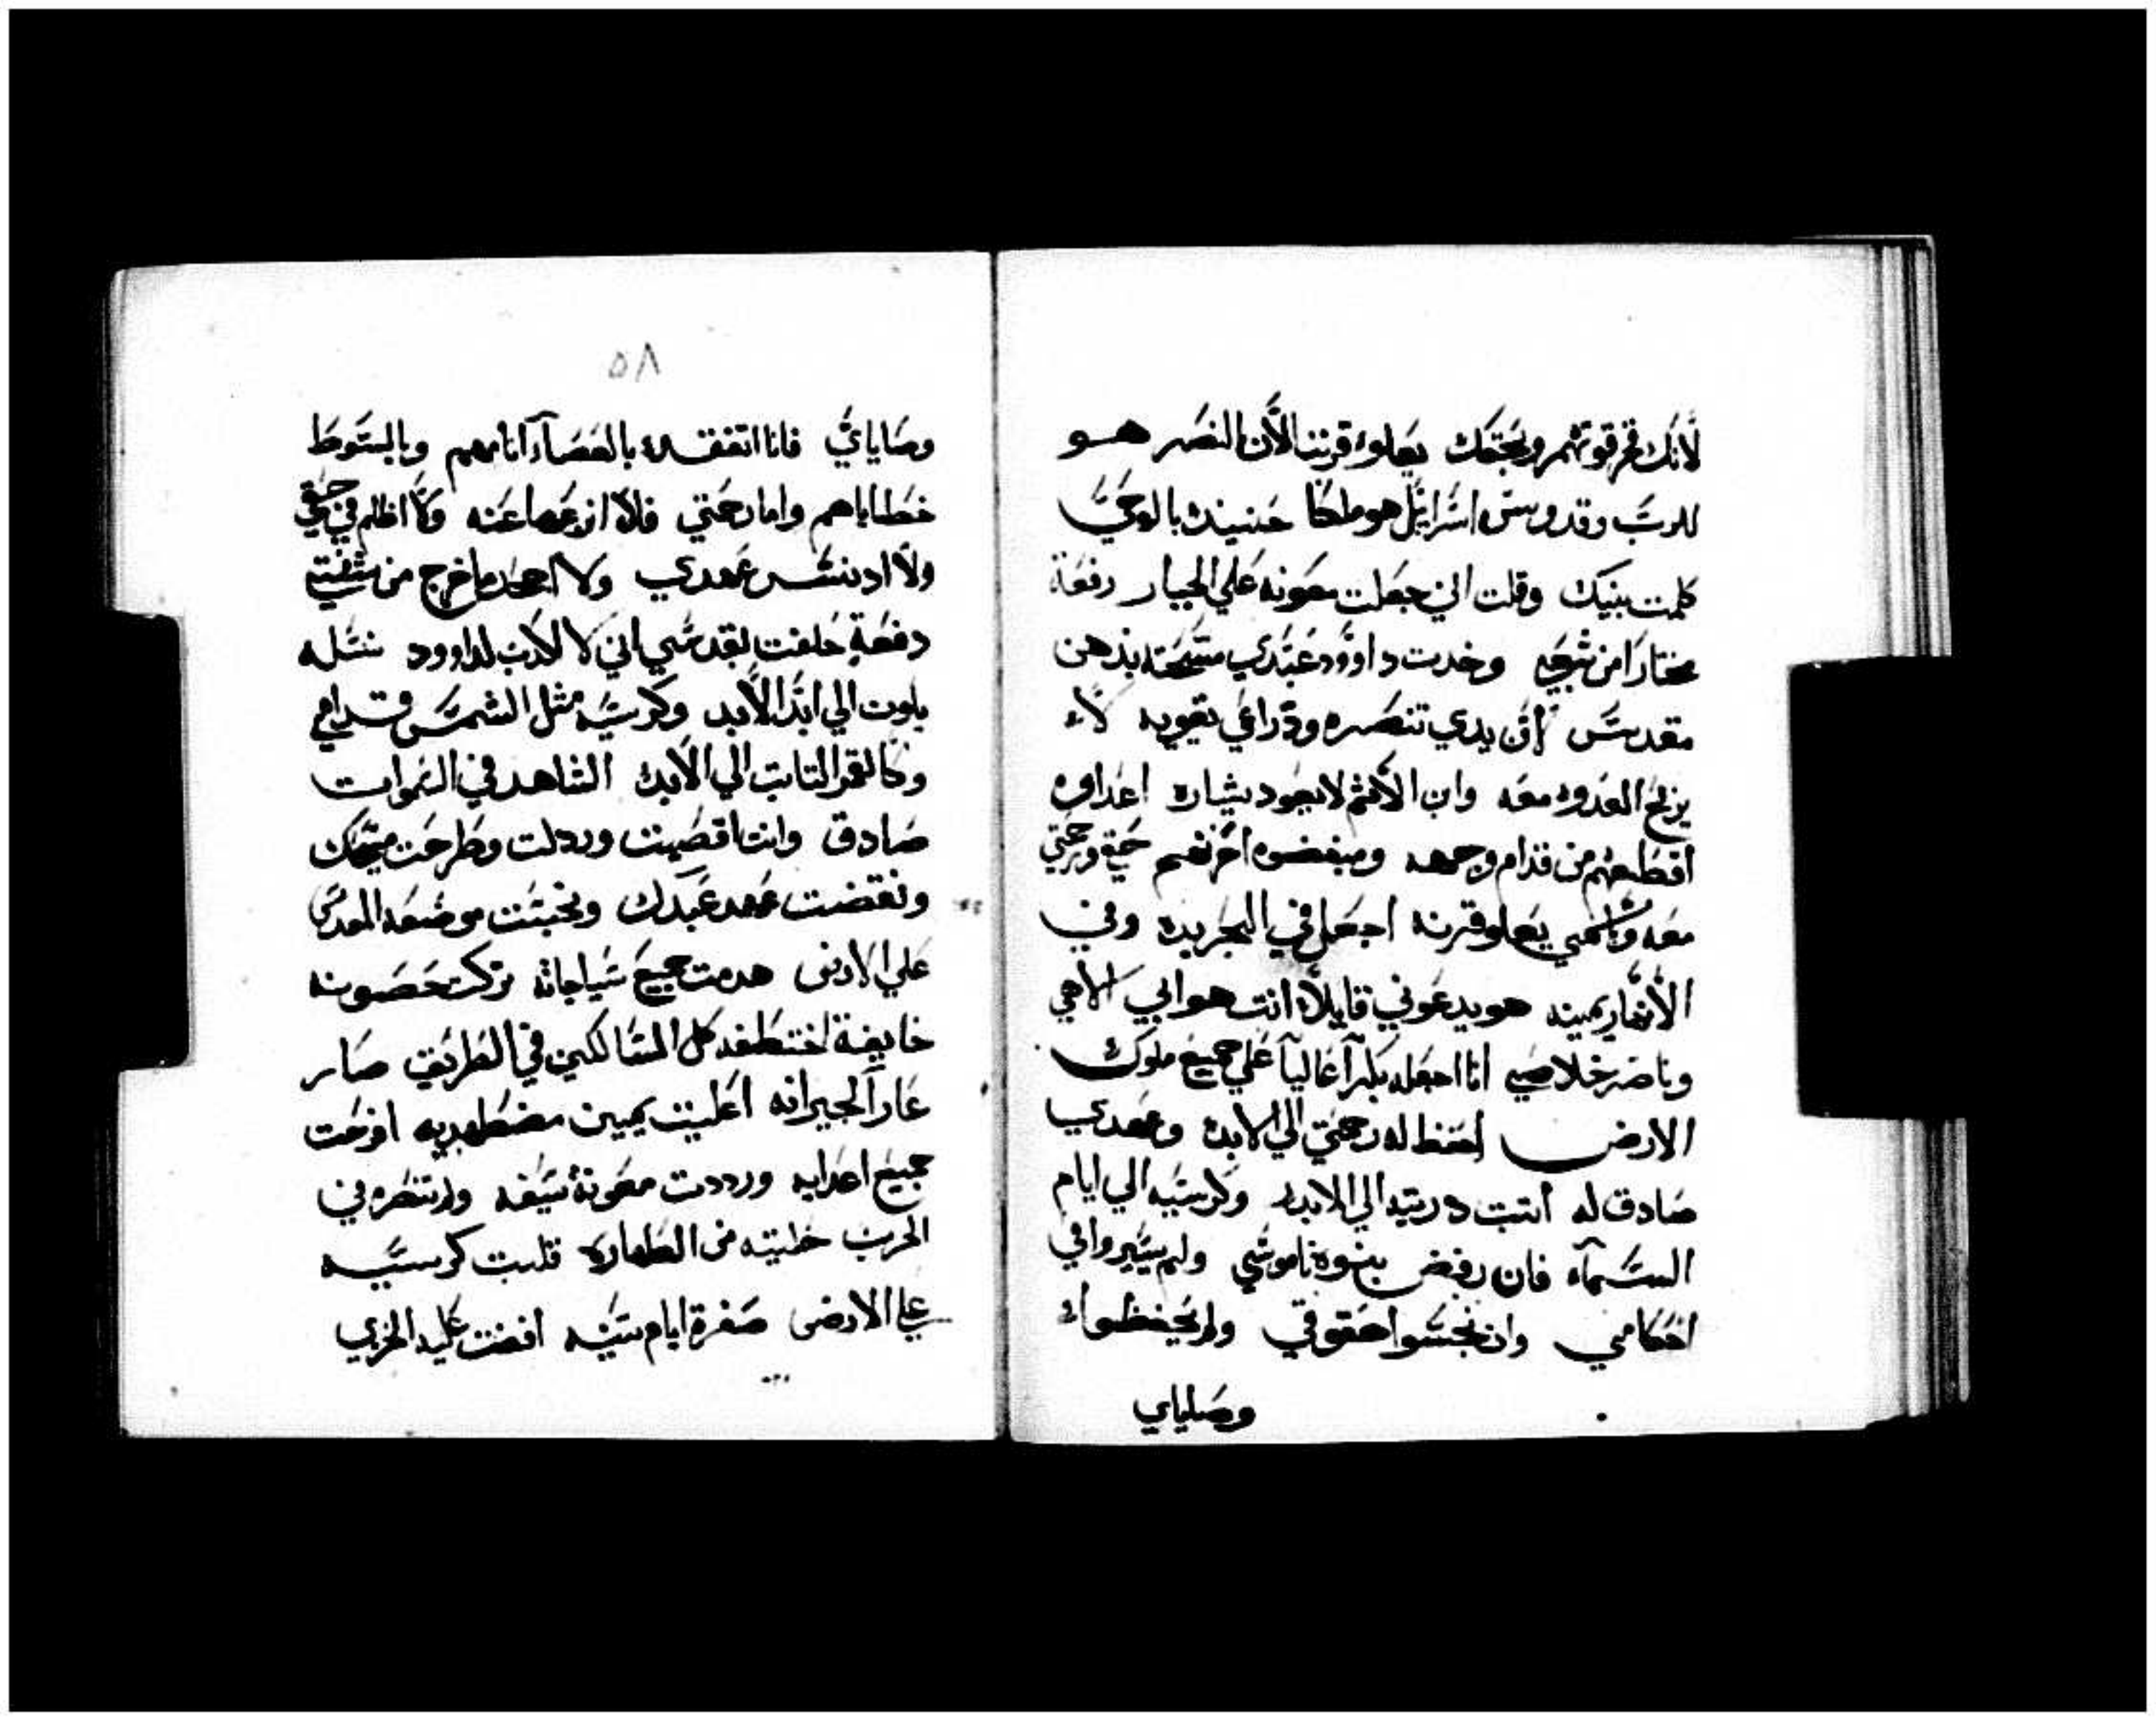 لأنك فخر قوتهم وبحقك يعلوا قرننا لأن النصر هو
للرب وقدوس اسرائيل هو ملكنا حنيند بالوحي
كلمت بنيك وقلت اني جعلت معونه علي الجبار رفعة
مختارا من شعبي وخدت داوود عبدي مسحته بدهن
مقدس لأن يدي تنصره ودراعي تقويه لا
يربح العدو معه وابن الأثم لا يعود يشاره اعداوه
اقطعهم من قدام وجهه ومبغضوه اخزنهم حقي ورحمتي
معه وباسمي يعلو قرنه اجعل في البحر يده وفي
الأنهار يمينه هو يدعوني قايلاً انت هو ابي الاهي
وناصر خلاصي انا اجعله بكراً عالياً علي جميع ملوك
الارض احفظ له رحمتي الي الابد وعهدي
صادق له اتبت دريته الي الابد وكرسيه الي ايام
السمآء فان رفض بنوه ناموسي ولم يسيروا في
احكامي وان نجسوا حقوقي ولم يحفظوا
وصاياي
٥٨
وصاياي فانا اتفقد بالعصا اتامهم وبالسوط
خطاياهم واما رحمتي فلا انزعها عنه ولا اظلم في حقي
ولا ادنس عهدي ولا اجحد ما خرج من شفتي
دفعة حلفت بقدسي اني لا اكدب لداوود نسله
يكون الي ابد الأبد وكرسيه مثل الشمس قدامي
وكالقمر التابت الي الأبد الشاهد في السموات
صادق وانت اقصيت وردلت وطرحت مسيحك
ونقضت عهد عبدك ونجست موضعه المقدس
علي الارض هدمت جميع سياجاته تركت حصونه
خايفة اختطفه كل السالكين في الطريق صار
عاراً لجيرانه اعليت يمين مضطهديه افرحت
جميع اعدايه ورددت معونة سيفه ولم تنصره في
الحرب خليته من الطهارة قلبت كرسيه
علي الارض صغرة ايام سنيه افضت عليه الخزي